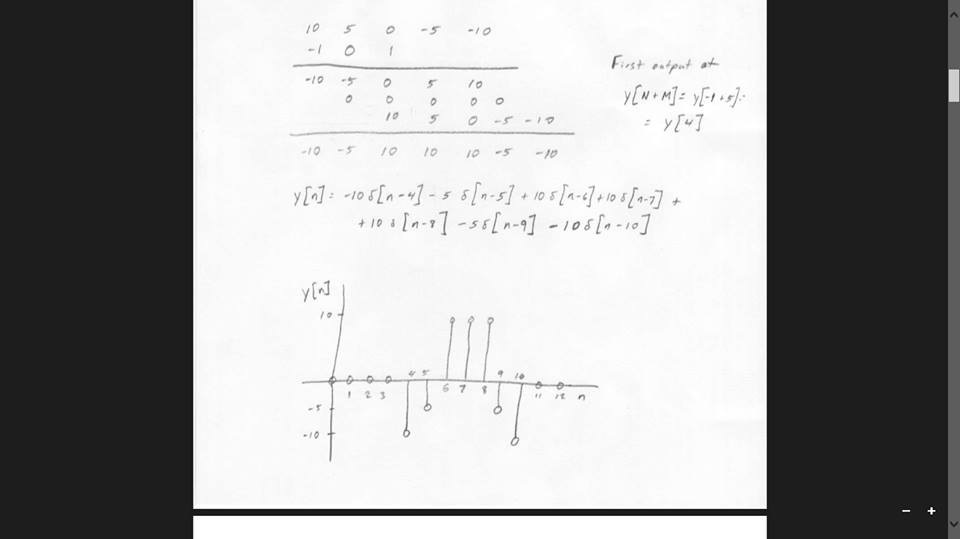 10 5 0 -5 -10
-1 0 1
-10 -5 0 5 10
0 0 0 0 0
10 5 0 -5 -10
-10 -5 10 10 10 -5 -10
First output at
y[N+M] = y[-1+5] =
= y[4]
y[n] = -10 δ[n-4] - 5 δ[n-5] + 10 δ[n-6] + 10 δ[n-7] +
+ 10 δ[n-8] - 5 δ[n-9] - 10 δ[n-10]
y[n]
10
4 5 9 10
1 2 3 6 7 8 11 12 n
-5
-10